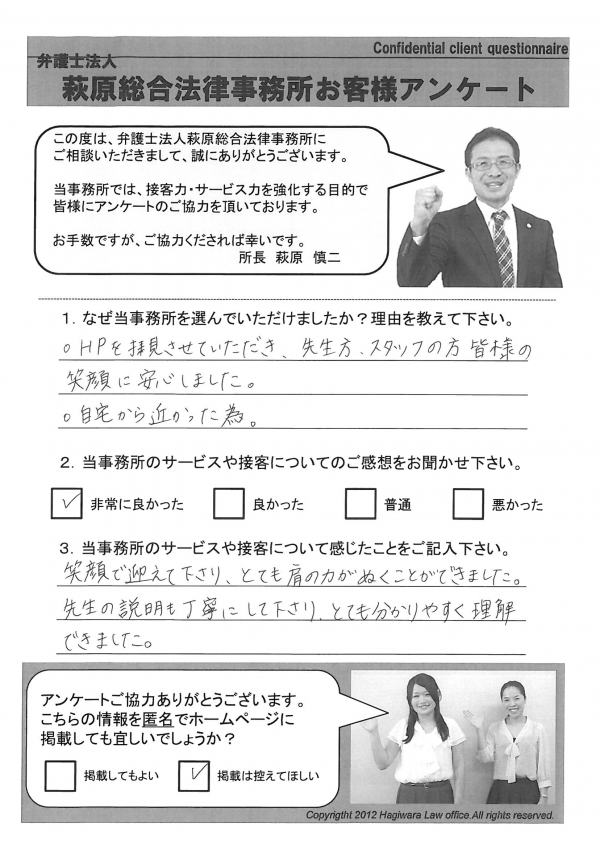 Confidential client questionnaire
弁護士法人
萩原総合法律事務所お客様アンケート
この度は、弁護士法人萩原総合法律事務所に
ご相談いただきまして、誠にありがとうございます。
当事務所では、接客力・サービス力を強化する目的で
皆様にアンケートのご協力を頂いております。
お手数ですが、ご協力くだされば幸いです。
所長 萩原 慎二
1. なぜ当事務所を選んでいただけましたか？理由を教えて下さい。
○HPを拝見させていただき、先生方、スタッフの方皆様の
笑顔に安心しました。
○自宅から近かった為。
2. 当事務所のサービスや接客についてのご感想をお聞かせ下さい。
✓ 非常に良かった 良かった 普通 悪かった
3. 当事務所のサービスや接客について感じたことをご記入下さい。
笑顔で迎えて下さり、とても肩の力がぬくことができました。
先生の説明も丁寧にして下さり、とても分かりやすく理解
できました。
アンケートご協力ありがとうございます。
こちらの情報を匿名でホームページに
掲載しても宜しいでしょうか？
掲載してもよい ✓ 掲載は控えてほしい
Copyrigtht 2012 Hagiwara Law office.All rights reserved.